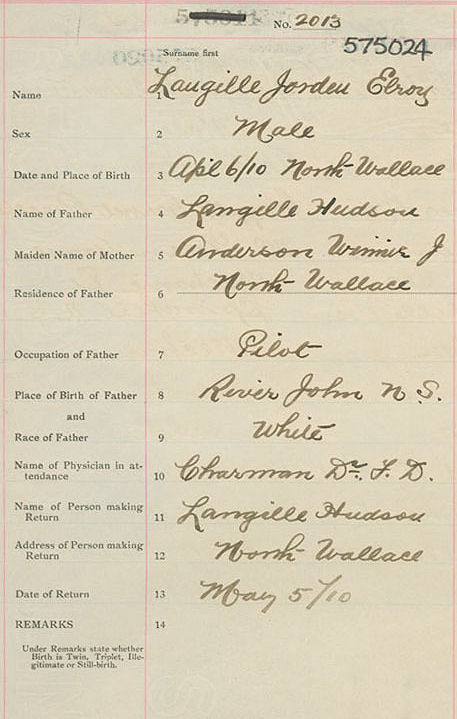 No. 2013
575024
Surname first
Name 1 Langille Jorden Elroy
Sex 2 Male
Date and Place of Birth 3 Apl 6/10 North Wallace
Name of Father 4 Langille Hudson
Maiden Name of Mother 5 Anderson Winnie J
Residence of Father 6 North Wallace
Occupation of Father 7 Pilot
Place of Birth of Father 8 River John N S.
and
Race of Father 9 White
Name of Physician in at-
tendance 10 Charman Dr. F. D.
Name of Person making
Return 11 Langille Hudson
Address of Person making
Return 12 North Wallace
Date of Return 13 May 5/10
REMARKS 14
Under Remarks state whether
Birth is Twin, Triplet, Ille-
gitimate or Still-birth.